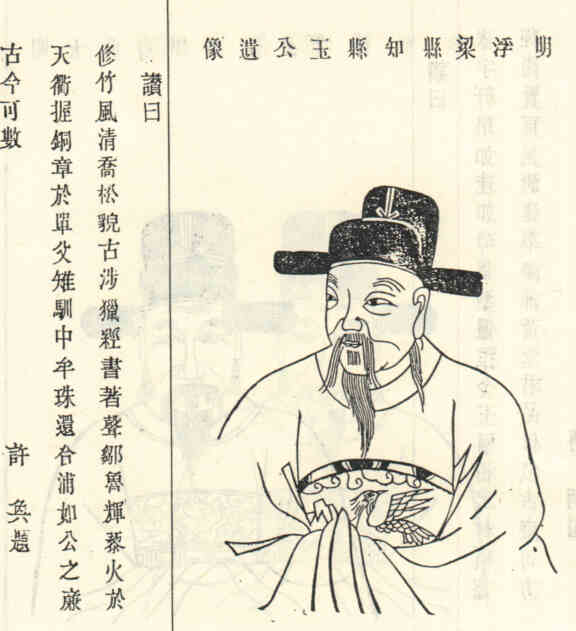 明浮梁縣知縣玉公遺像
讚曰
修竹風清喬松貌古涉獵經書著聲鄒魯輝藜火於
天衢握銅章於單父雉馴中牟珠還合浦如公之廉
古今可數
許題